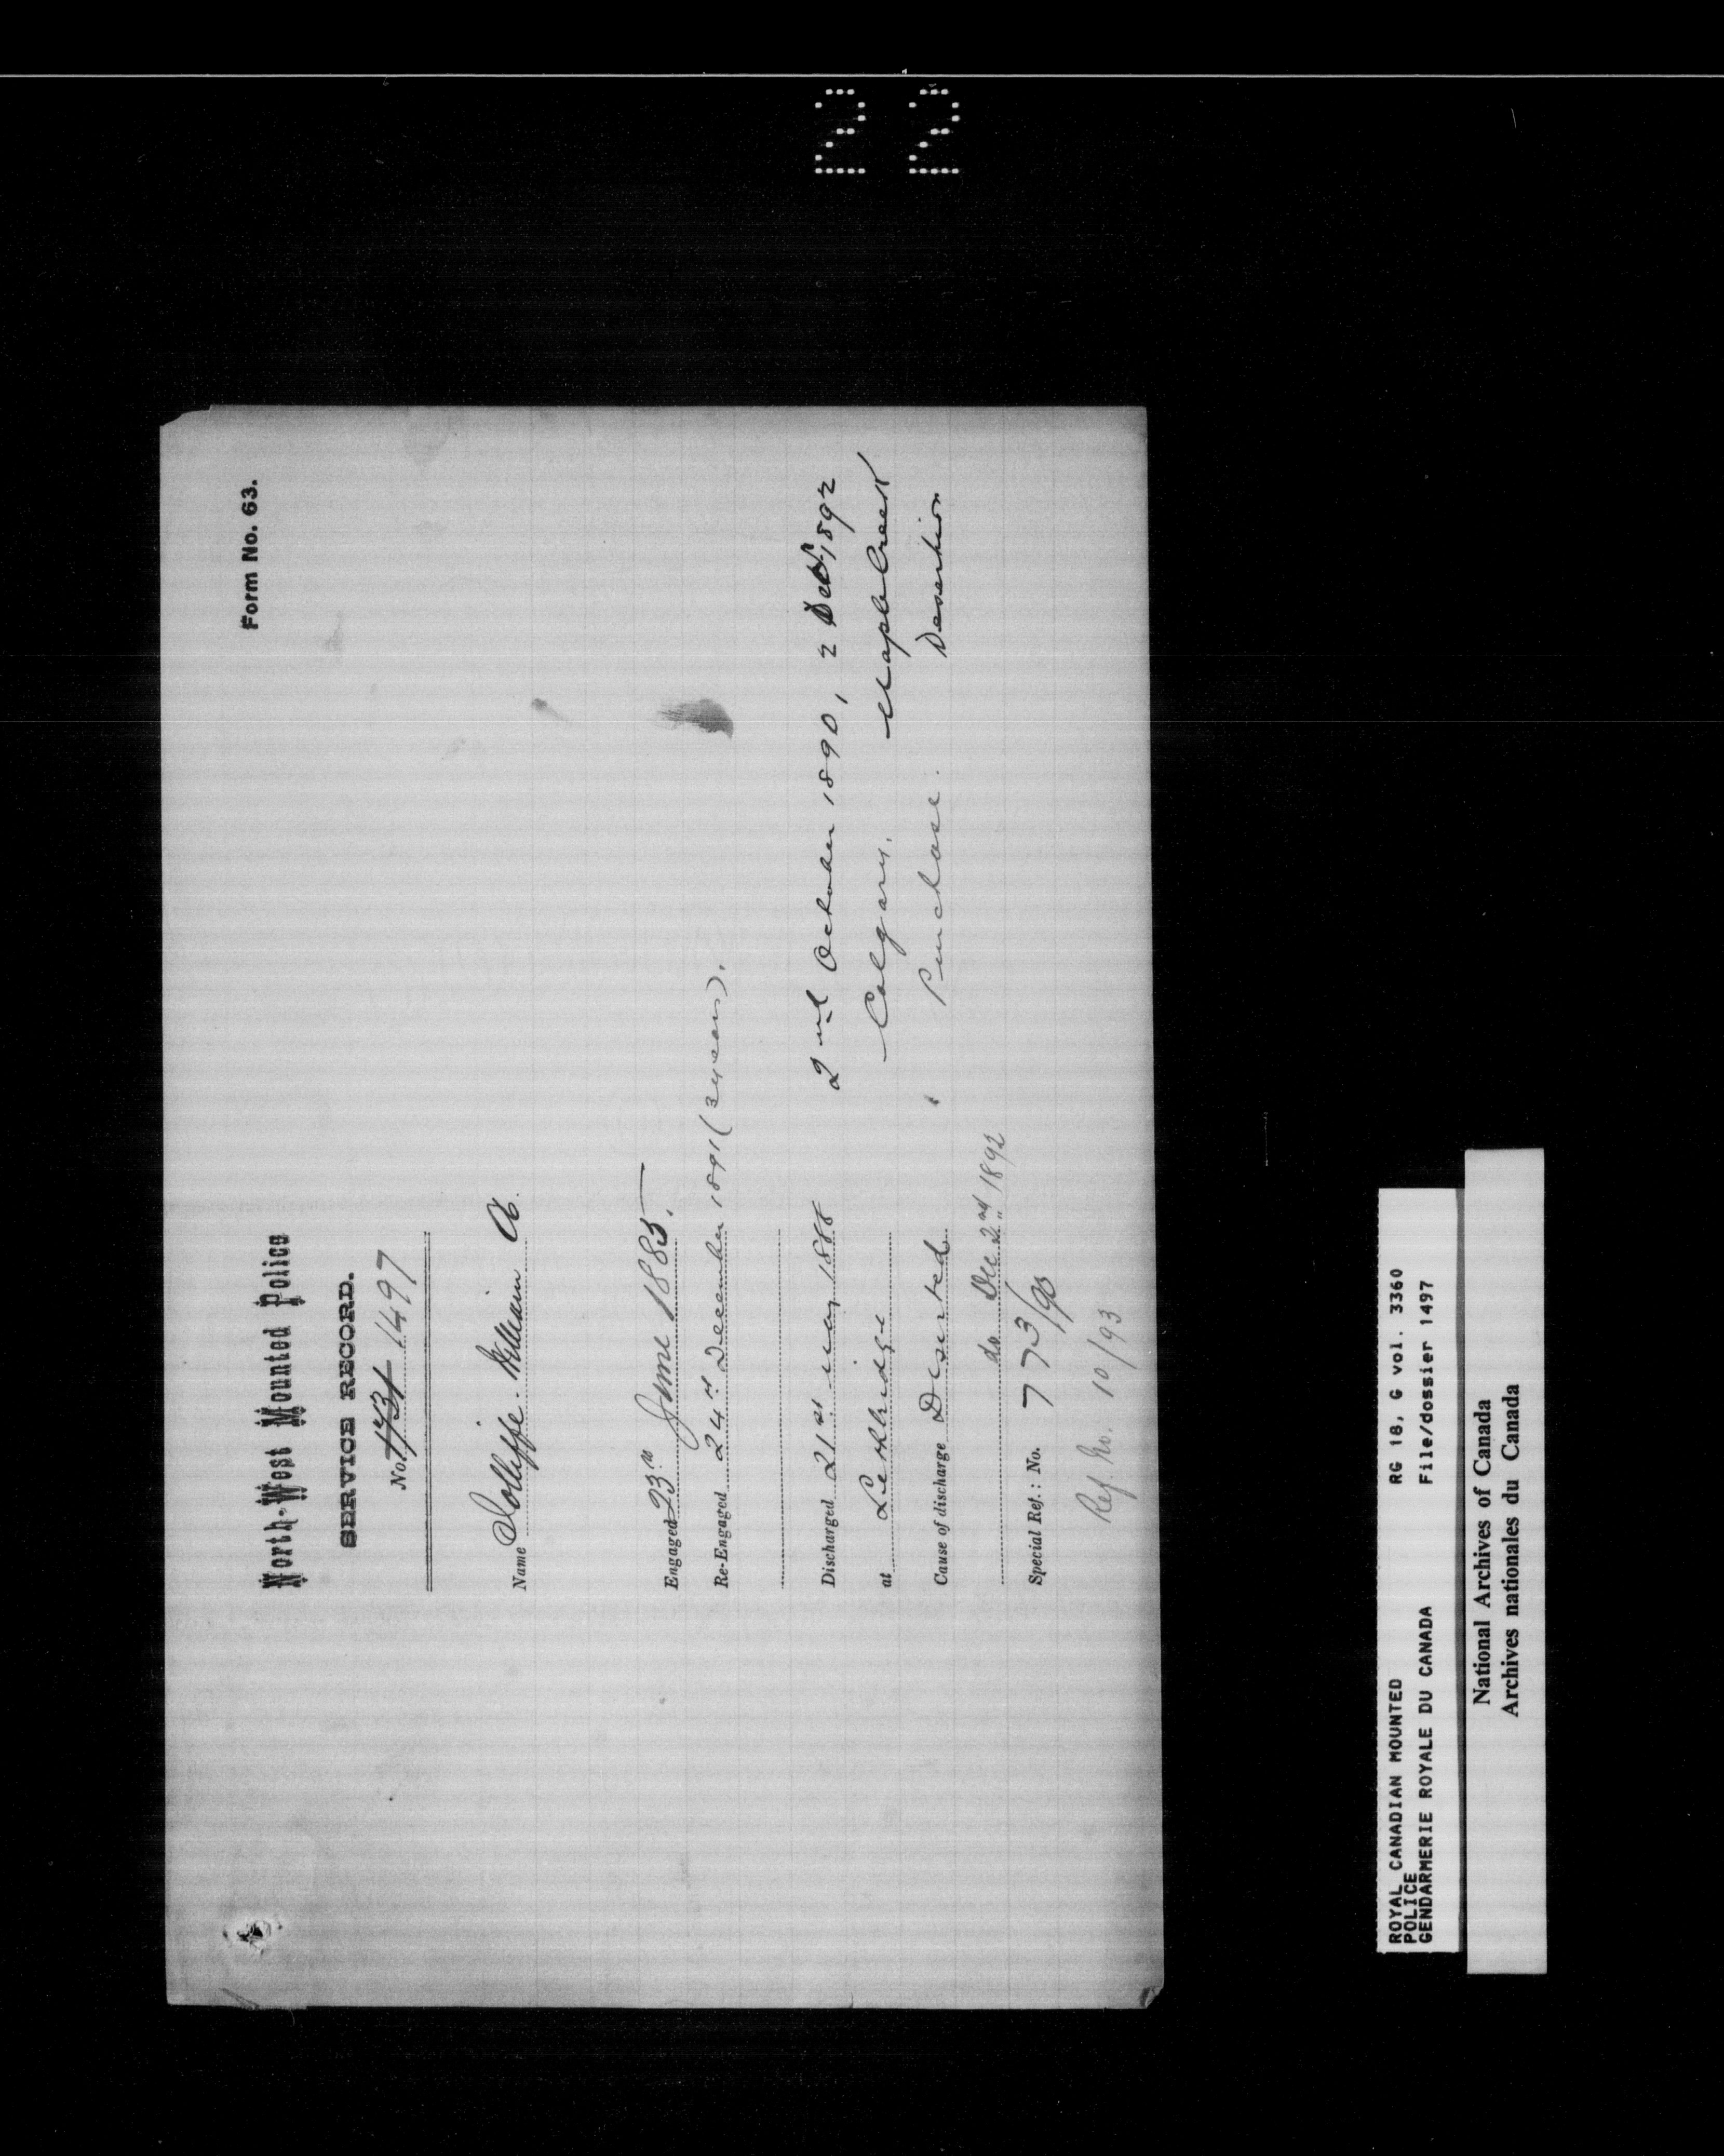 22
Form No. 63.
North-West Mounted Police
SERVICE RECORD.
No. 1731 1497
Name Jolliffe. William A.
Engaged 23rd June 1885.
Re-Engaged 24th December 1891 (3 years).
Discharged 21st May 1888 2nd October 1890, 2 Dec, 1892
at Lethbridge Calgary. Maple Creek
Cause of discharge Deserted Purchase. Desertion
do Dec 2nd 1892
Special Ref.: No. 773/90
Ref. No. 10/93
ROYAL CANADIAN MOUNTED RG 18, G vol. 3360
POLICE
GENDARMERIE ROYALE DU CANADA File/dossier 1497
National Archives of Canada
Archives nationales du Canada